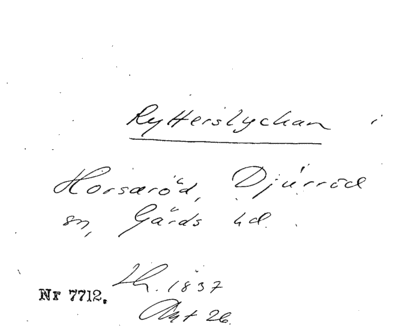 Rytterslyckan i
Horsaröd, Djurröd
sn, Gärds hd.
Lh. 1837
Nr 7712.
Akt 26.